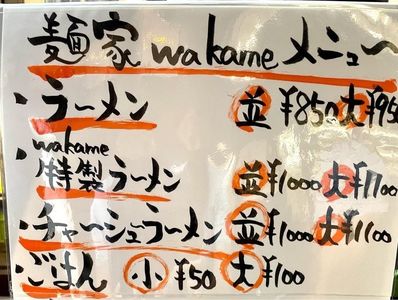 麺家 wakame メニュー
・ラーメン 並 ¥850 大 ¥95
wakame
・特製ラーメン 並 ¥1000 大 ¥1100
・チャーシューラーメン 並 ¥1000 大 ¥1100
・ごはん 小 ¥50 大 ¥100